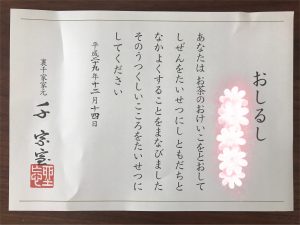 おしるし
あなたは お茶のおけいこをとおして
しぜんをたいせつにし ともだちと
なかよくすることをまなびました
そのうつくしいこころをたいせつに
してください
平成二九年十二月十四日
裏千家家元
千 宗室